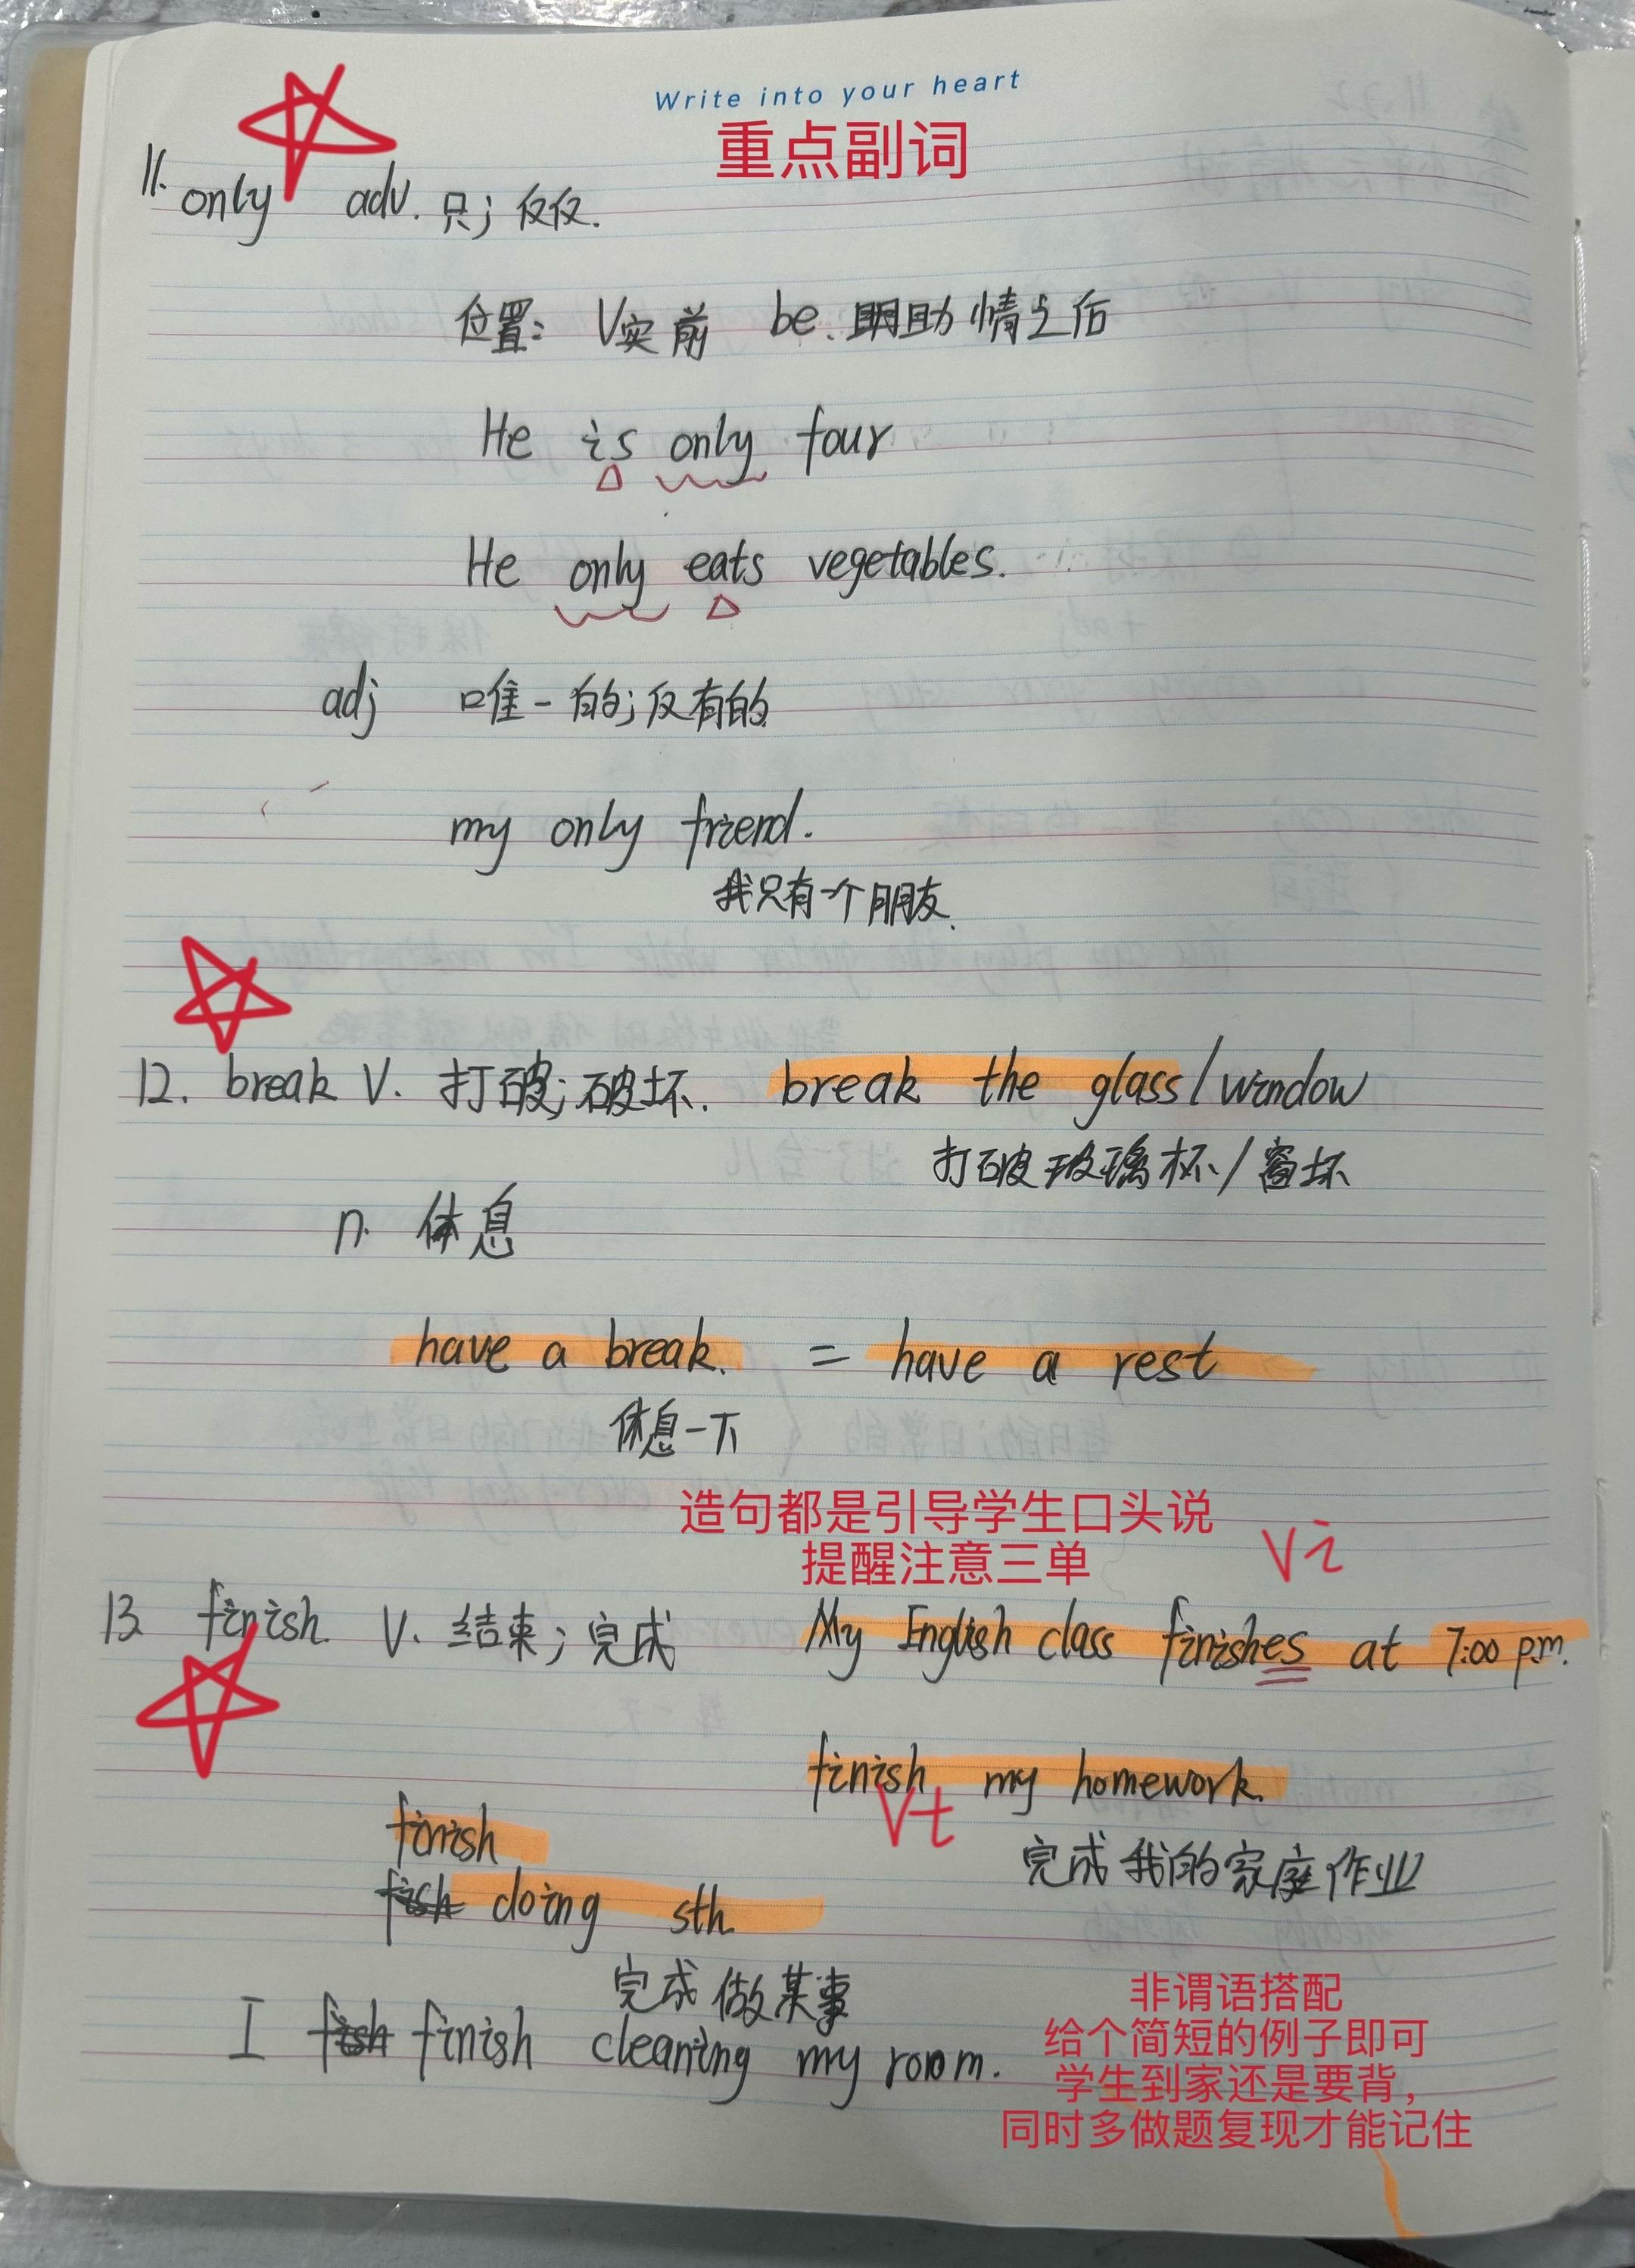 Write into your heart
重点副词
11. only adv. 只；仅仅.
位置： V实前 be. 助情之后
He is only four
He only eats vegetables.
adj 唯一的；仅有的
my only friend.
我只有一个朋友.
12. break V. 打破；破坏. break the glass/window
打破玻璃杯/窗坏
n. 休息
have a break. = have a rest
休息一下
造句都是引导学生口头说
提醒注意三单
Vi
13 finish V. 结束；完成 My English class finishes at 7:00 p.m.
finish my homework.
Vt
完成我的家庭作业
finish
fish doing sth.
完成做某事
I fish finish cleaning my room.
非谓语搭配
给个简短的例子即可
学生到家还是要背，
同时多做题复现才能记住